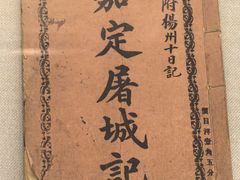 附楊州十日記
嘉定屠城記